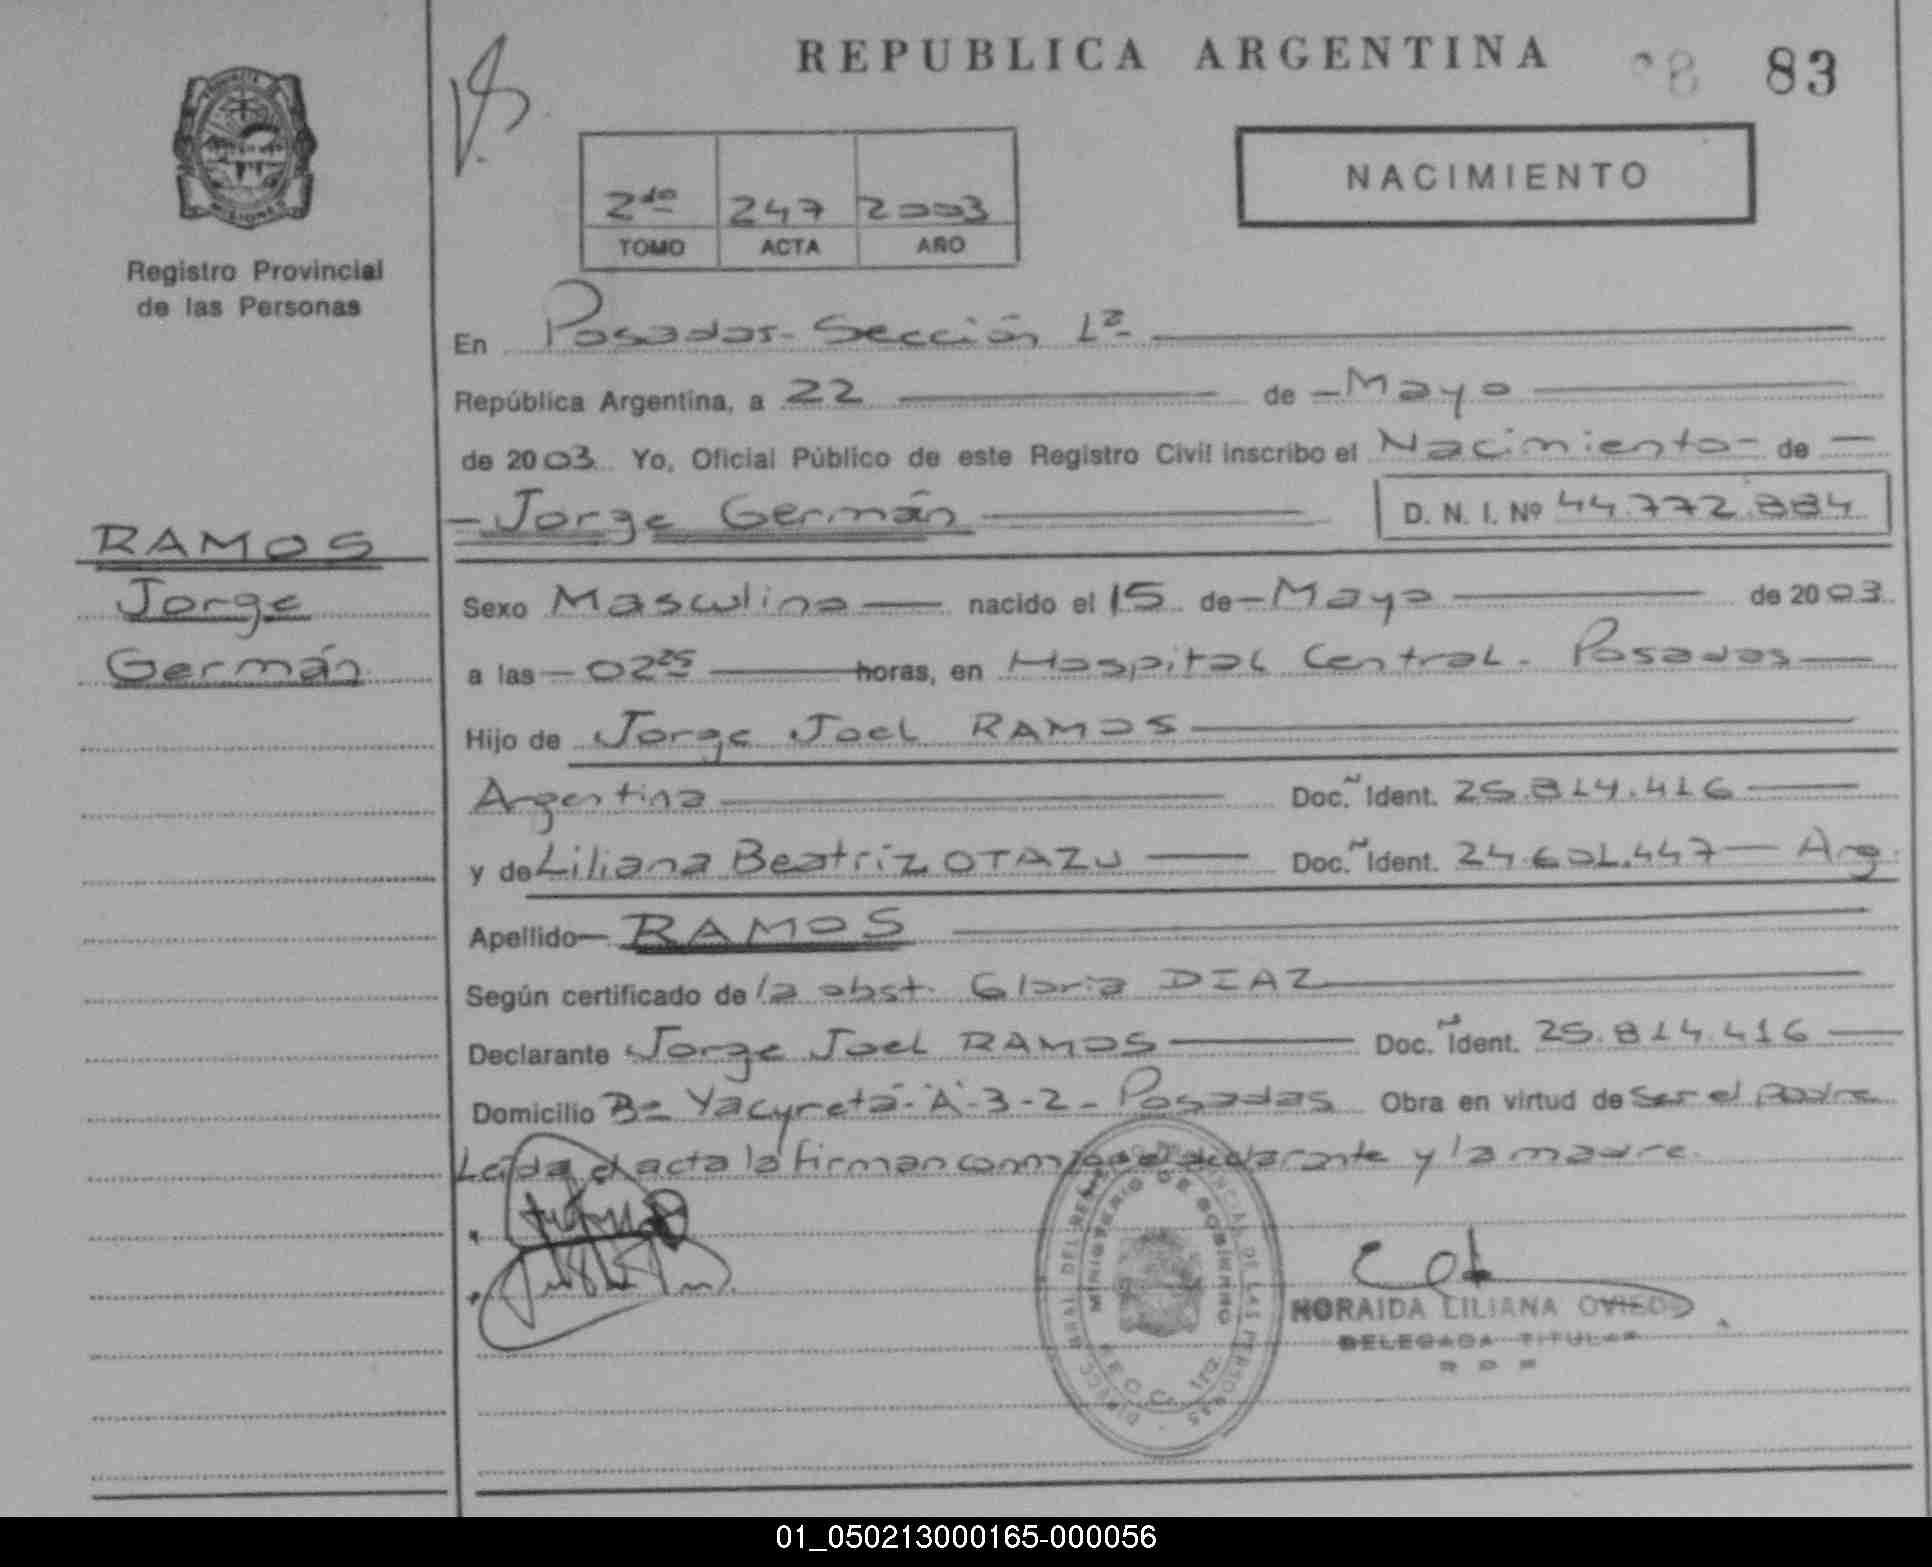 REPUBLICA ARGENTINA
83
NACIMIENTO
2do 247 2003
TOMO ACTA AÑO
MISIONES
Registro Provincial
de las Personas
En Posadas - Sección 1ª
República Argentina, a 22 de - Mayo
de 2003 Yo, Oficial Público de este Registro Civil inscribo el Nacimiento - de
- Jorge Germán D. N. I. Nº 44.772.884
RAMOS
Jorge
Germán
Sexo Masculino nacido el 15 de - Mayo de 2003
a las - 02 25 horas, en Hospital Central - Posadas
Hijo de Jorge Joel RAMOS
Argentina Doc. Ident. 25.814.416
y de Liliana Beatriz OTAZU Doc. Ident. 24.601.447 - Arg.
Apellido - RAMOS
Según certificado de la obst. Gloria DIAZ
Declarante Jorge Joel RAMOS Doc. Ident. 25.814.416
Domicilio Bº Yacyretá - A - 3 - 2 - Posadas Obra en virtud de ser el padre
Leída el acta la firman conmigo el declarante y la madre.
MINISTERIO DE GOBIERNO
NORAIDA LILIANA OVIEDO
DELEGADA TITULAR
01_050213000165-000056